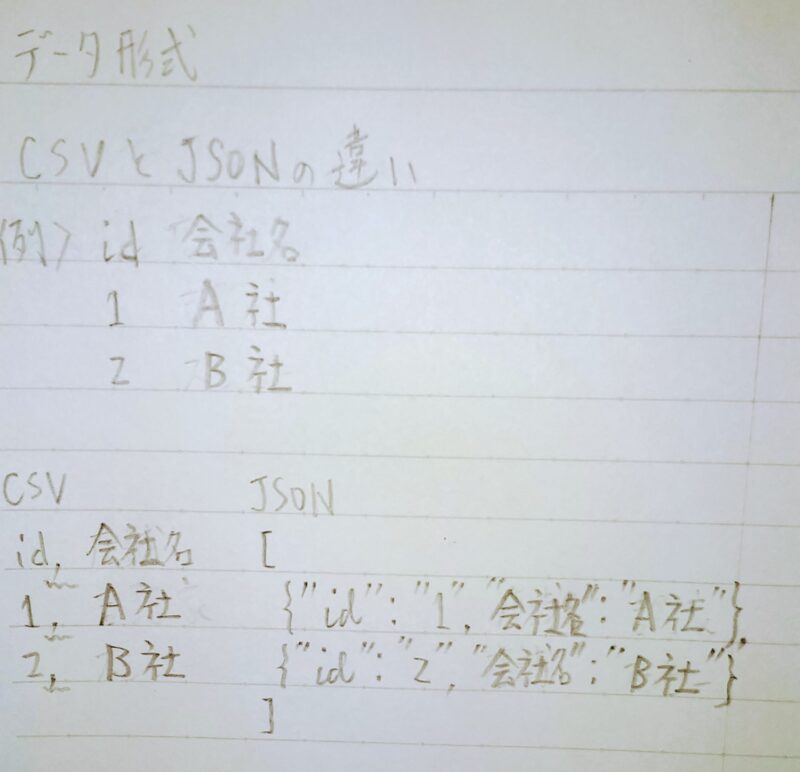 データ形式
CSVとJSONの違い
例> id 会社名
1 A社
2 B社
CSV
id, 会社名
1, A社
2, B社
JSON
[
{"id": "1", "会社名": "A社"},
{"id": "2", "会社名": "B社"}
]